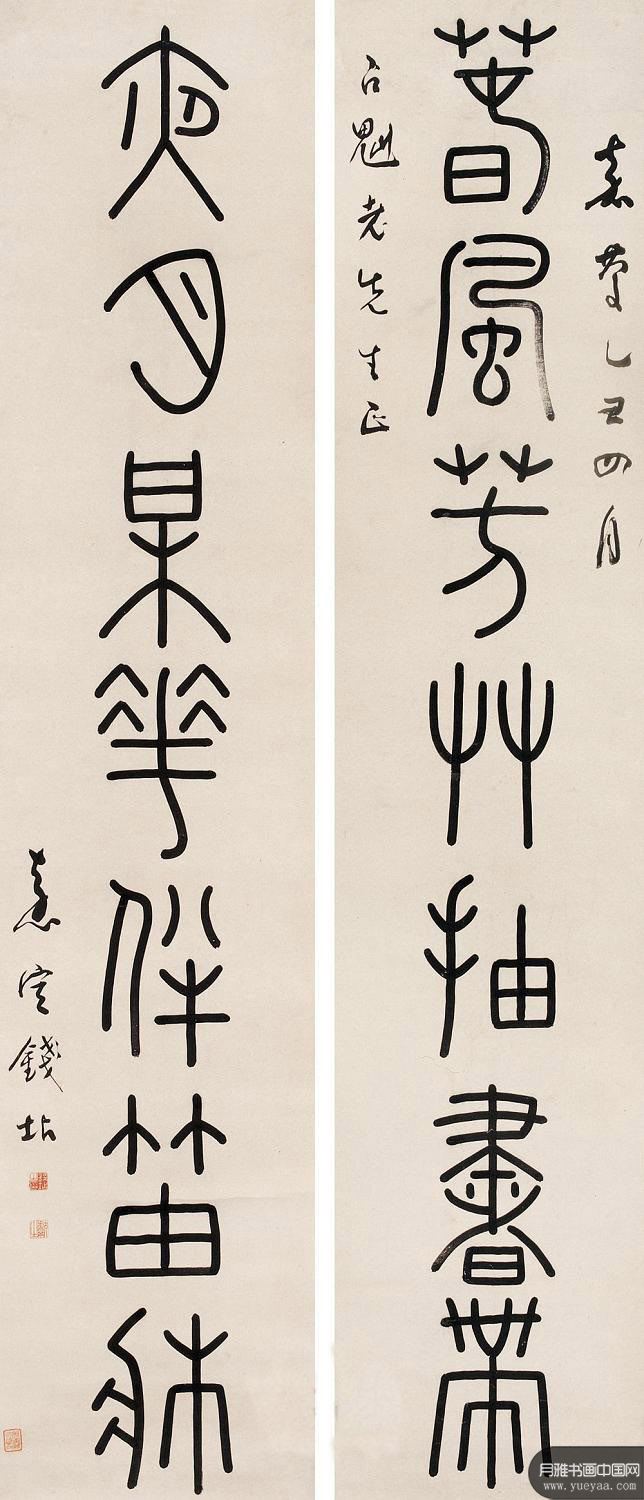 嘉慶乙丑四月
萅風芳艸抽書帶
魁老先生正
夜月某華伴笛
嘉定錢坫
月雅书画中国网
www.yueyaa.com